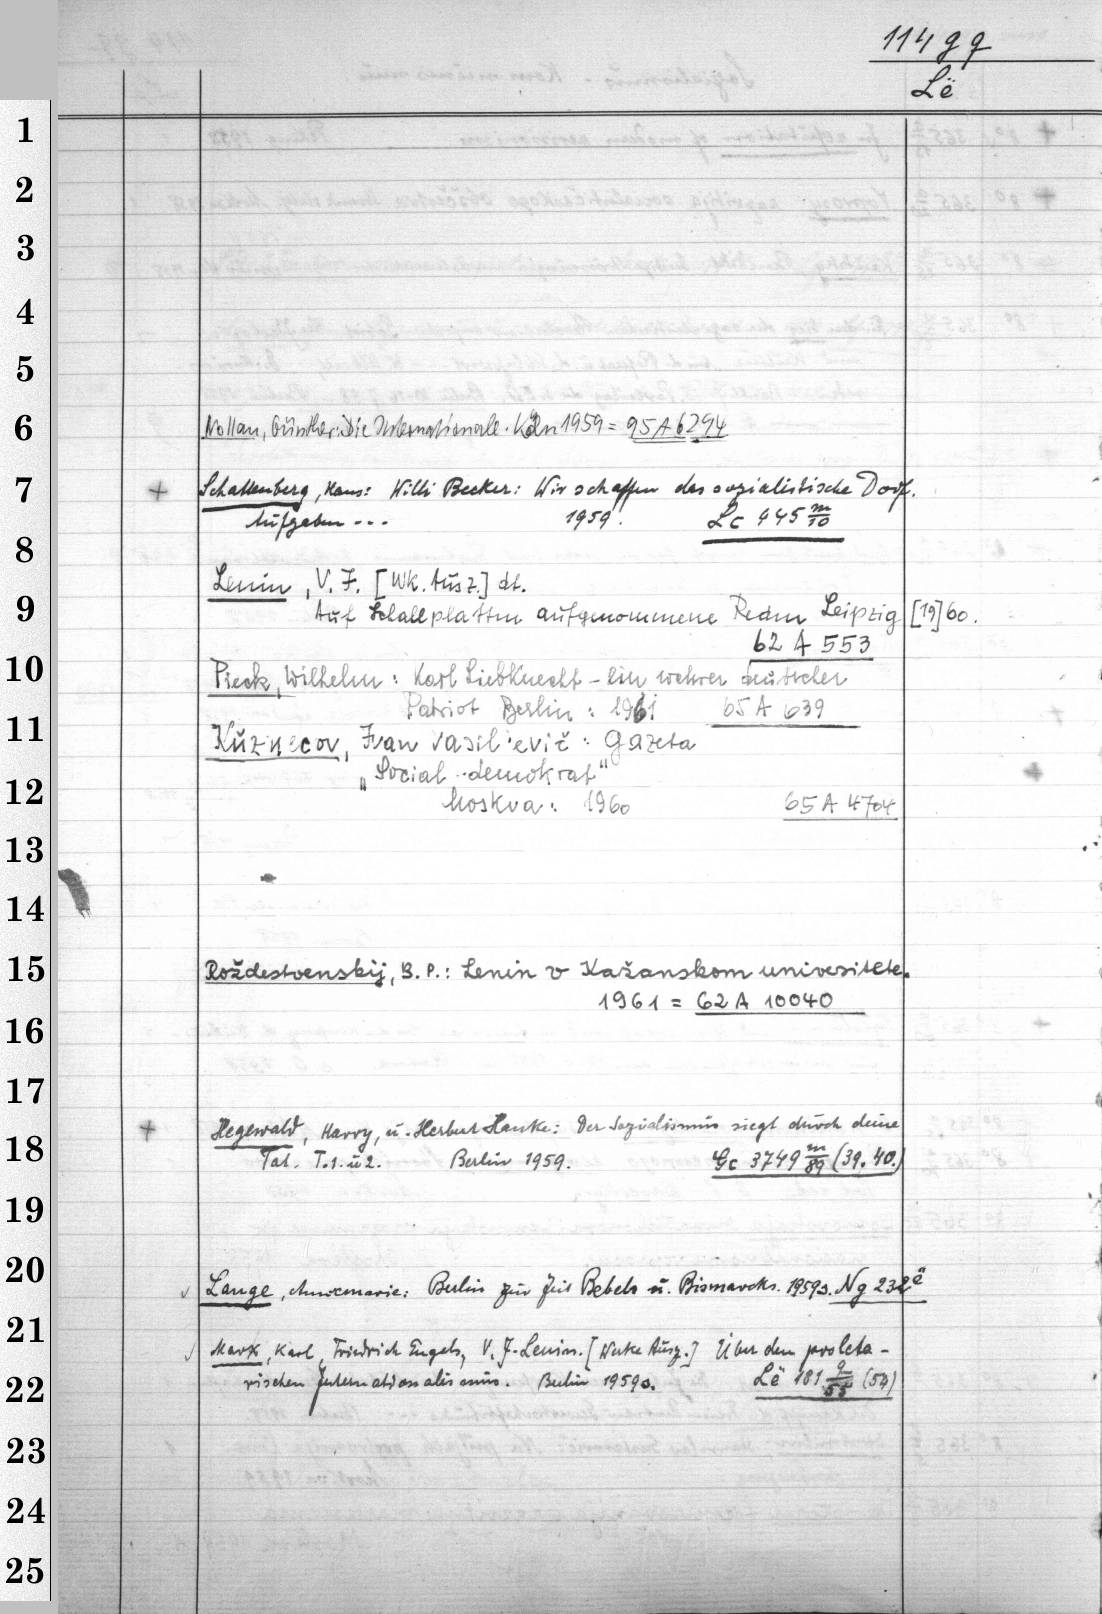 114 gg
Lë
1
2
3
4
5
6
Nollau, Günther: Die Internationale. Köln 1959 = 95 A 6294
7
+ Schattenberg, Hans: Willi Becker: Wir schaffen das sozialistische Dorf.
Aufgaben --- 1959. Lc 445 m/10
8
Lenin, V. J. [Wk. Ausz.] dt.
9
Auf Schallplatten aufgenommene Reden Leipzig [19]60.
62 A 553
10
Pieck, Wilhelm: Karl Liebknecht – ein wahrer deutscher
Patriot Berlin: 1961 65 A 639
11
Kuznecov, Ivan Vasil'evič: Gazeta
„Social-demokrat“
12
Moskva: 1960 65 A 4704
13
14
15
Roždestvenskij, B. P.: Lenin v Kažanskom universitete.
1961 = 62 A 10040
16
17
+ Hegewald, Harry, u. Herbert Hanke: Der Sozialismus siegt durch deine
18
Tat. T. 1. u 2. Berlin 1959. Gc 3749 m/89 (39. 40.)
19
20
√ Lange, Annemarie: Berlin zur Zeit Bebels u. Bismarcks. 1959. Ng 232 ë
21
√ Marx, Karl, Friedrich Engels, V. J. Lenin. [Werke Ausz.] Über den proleta-
22
rischen Internationalismus. Berlin 1959. Lë 181 q/55 (54)
23
24
25